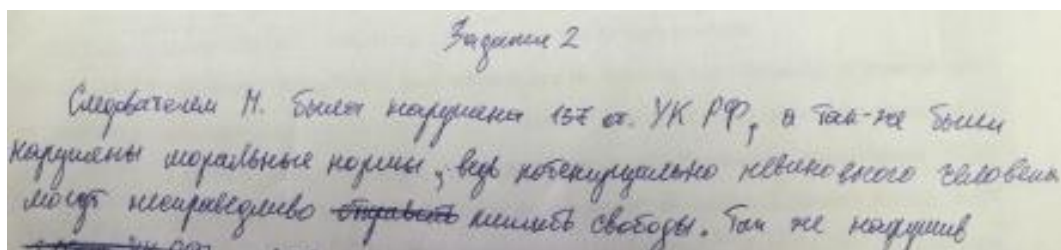 Задание 2
Следователем М. была нарушена 137 ст. УК РФ, а так-же были
нарушены моральные нормы, ведь потенциально невиновного человека
могут несправедливо отправить лишить свободы. Так же нарушив